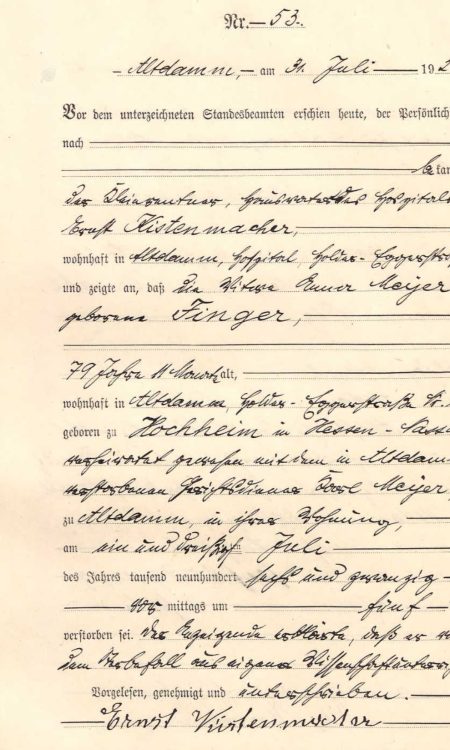 Nr. 53.
Altdamm, am 31. Juli 192
Vor dem unterzeichneten Standesbeamten erschien heute, der Persönlich
nach
be kan
der Kleinrentner, Hausvater des Hospitals
Ernst Kistenmacher,
wohnhaft in Altdamm, Hospital, Holder-Eggerstra
und zeigte an, daß die Witwe Anna Meijer
geborene Finger,
79 Jahre 11 Monate alt,
wohnhaft in Altdamm, Holder-Eggerstraße Nr.
geboren zu Hochheim in Hessen-Nassa
verheiratet gewesen mit dem in Altdam
verstorbenen Gerichtsdiener Meijer,
zu Altdamm, in ihrer Wohnung,
am ein und dreißigsten Juli
des Jahres tausend neunhundert sechs und zwanzig
vor mittags um fünf
verstorben sei. Der Anzeigende erklärte, daß er v
dem Sterbefall aus eigener Wissenschaft unterri
Vorgelesen, genehmigt und unterschrieben.
Ernst Kistenmacher